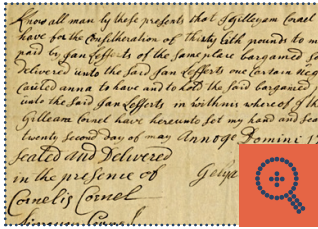 Know all man by these presents that I Gilleyam Cornel
have for the Consideration of Thirty fith pounds to m
paid by Jan Lefferts of the same place bargained so
Delivered unto the said Jan Lefferts one certain neg
Called anna to have and to hold the said bargained
unto the said Jan Lefferts in withnis whereof I th
Gilleam Cornel have hereunto set my hand and sea
twenty second Day of may Annoge Domini 17
Sealed and Delivered
in the presence of
Cornelis Cornel
Cornel